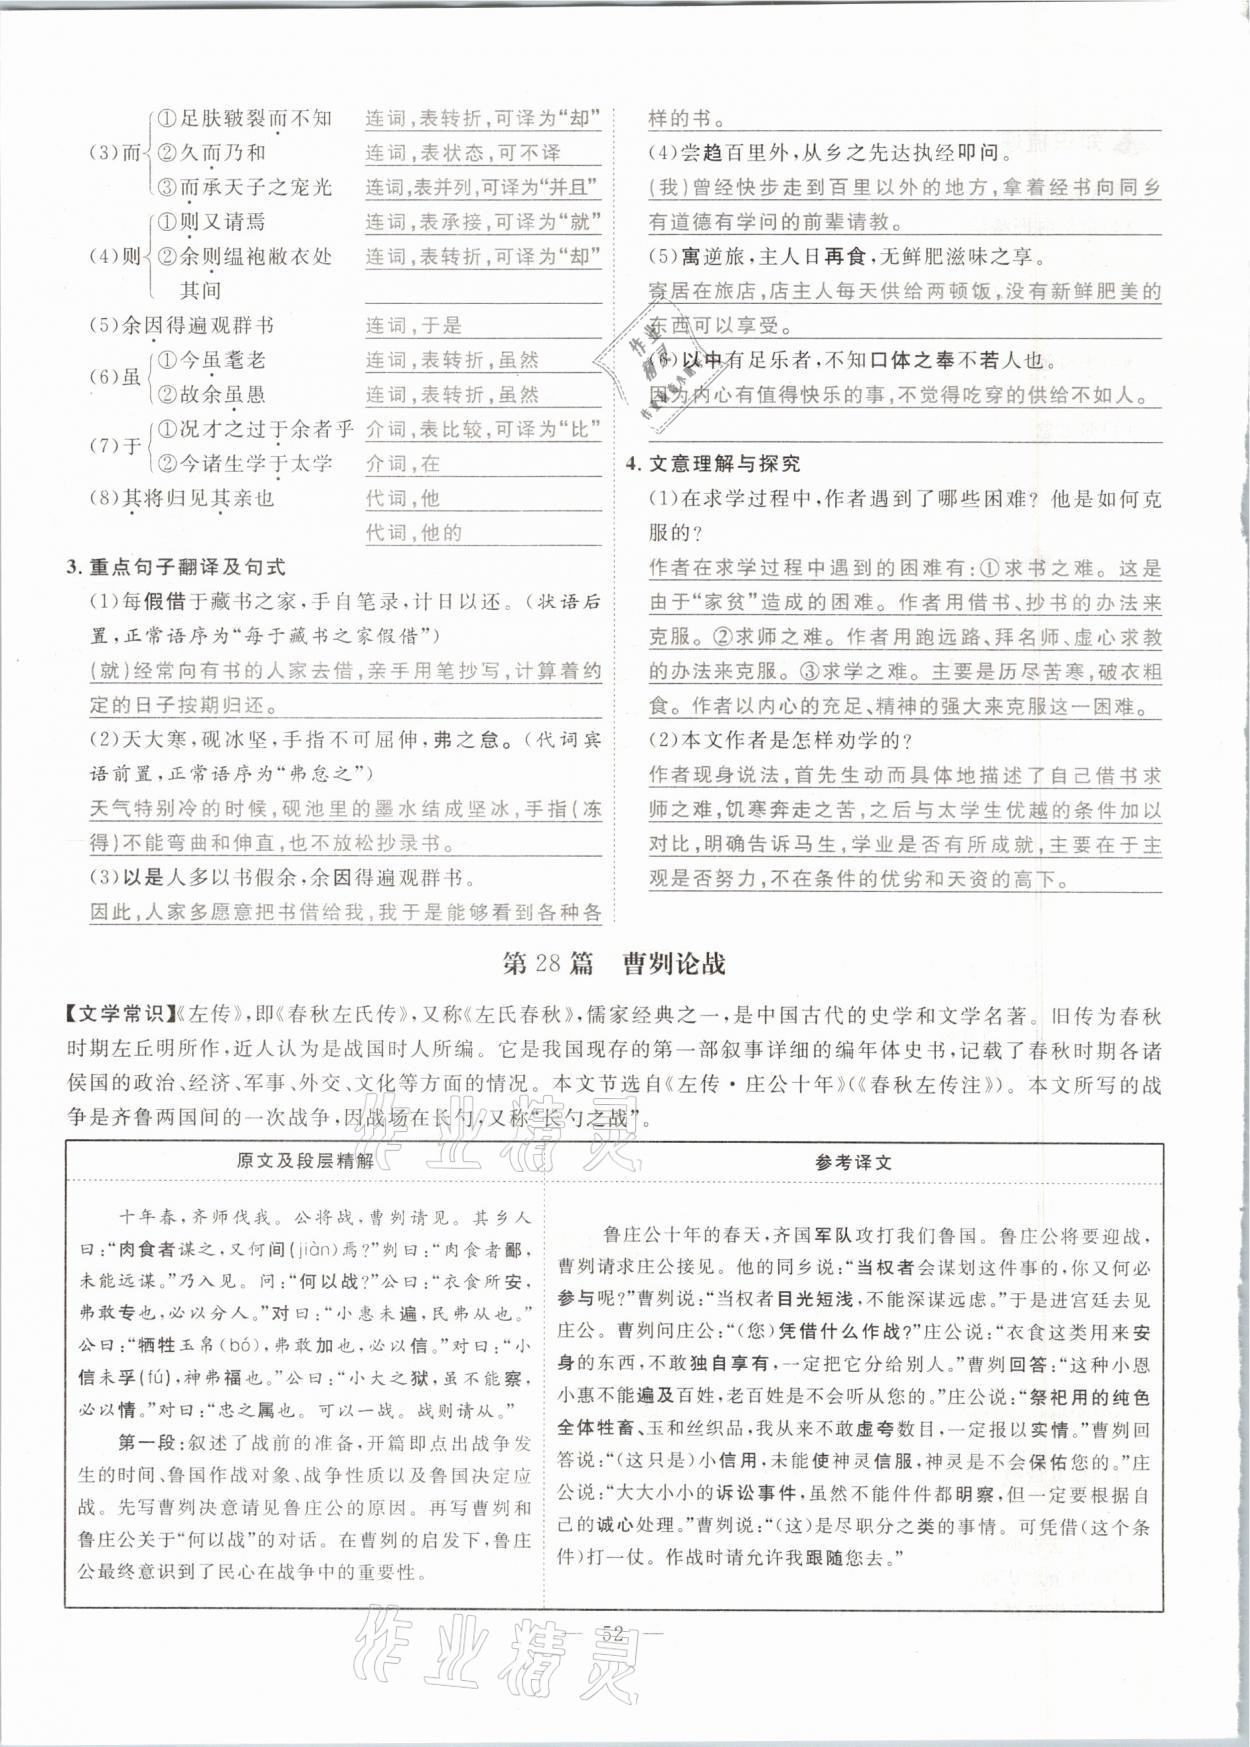 (3)而
①足肤皲裂而不知 连词,表转折,可译为“却”
②久而乃和 连词,表状态,可不译
③而承天子之宠光 连词,表并列,可译为“并且”
(4)则
①则又请焉 连词,表承接,可译为“就”
②余则缊袍敝衣处 连词,表转折,可译为“却”
其间
(5)余因得遍观群书 连词,于是
(6)虽
①今虽耄老 连词,表转折,虽然
②故余虽愚 连词,表转折,虽然
(7)于
①况才之过于余者乎 介词,表比较,可译为“比”
②今诸生学于太学 介词,在
(8)其将归见其亲也 代词,他
代词,他的
3. 重点句子翻译及句式
(1)每假借于藏书之家,手自笔录,计日以还。(状语后
置,正常语序为“每于藏书之家假借”)
(就)经常向有书的人家去借,亲手用笔抄写,计算着约
定的日子按期归还。
(2)天大寒,砚冰坚,手指不可屈伸,弗之怠。(代词宾
语前置,正常语序为“弗怠之”)
天气特别冷的时候,砚池里的墨水结成坚冰,手指(冻
得)不能弯曲和伸直,也不放松抄录书。
(3)以是人多以书假余,余因得遍观群书。
因此,人家多愿意把书借给我,我于是能够看到各种各
样的书。
(4)尝趋百里外,从乡之先达执经叩问。
(我)曾经快步走到百里以外的地方,拿着经书向同乡
有道德有学问的前辈请教。
(5)寓逆旅,主人日再食,无鲜肥滋味之享。
寄居在旅店,店主人每天供给两顿饭,没有新鲜肥美的
东西可以享受。
(6)以中有足乐者,不知口体之奉不若人也。
因为内心有值得快乐的事,不觉得吃穿的供给不如人。
4. 文意理解与探究
(1)在求学过程中,作者遇到了哪些困难? 他是如何克
服的?
作者在求学过程中遇到的困难有:①求书之难。这是
由于“家贫”造成的困难。作者用借书、抄书的办法来
克服。②求师之难。作者用跑远路、拜名师、虚心求教
的办法来克服。③求学之难。主要是历尽苦寒,破衣粗
食。作者以内心的充足、精神的强大来克服这一困难。
(2)本文作者是怎样劝学的?
作者现身说法,首先生动而具体地描述了自己借书求
师之难,饥寒奔走之苦,之后与太学生优越的条件加以
对比,明确告诉马生,学业是否有所成就,主要在于主
观是否努力,不在条件的优劣和天资的高下。
第28篇 曹刿论战
【文学常识】《左传》,即《春秋左氏传》,又称《左氏春秋》,儒家经典之一,是中国古代的史学和文学名著。旧传为春秋
时期左丘明所作,近人认为是战国时人所编。它是我国现存的第一部叙事详细的编年体史书,记载了春秋时期各诸
侯国的政治、经济、军事、外交、文化等方面的情况。本文节选自《左传·庄公十年》(《春秋左传注》)。本文所写的战
争是齐鲁两国间的一次战争,因战场在长勺,又称“长勺之战”。
原文及段层精解
十年春,齐师伐我。公将战,曹刿请见。其乡人
曰:“肉食者谋之,又何间(jiàn)焉?”刿曰:“肉食者鄙,
未能远谋。”乃入见。问:“何以战?”公曰:“衣食所安,
弗敢专也,必以分人。”对曰:“小惠未遍,民弗从也。”
公曰:“牺牲玉帛(bó),弗敢加也,必以信。”对曰:“小
信未孚(fú),神弗福也。”公曰:“小大之狱,虽不能察,
必以情。”对曰:“忠之属也。可以一战。战则请从。”
第一段:叙述了战前的准备,开篇即点出战争发
生的时间、鲁国作战对象、战争性质以及鲁国决定应
战。先写曹刿决意请见鲁庄公的原因。再写曹刿和
鲁庄公关于“何以战”的对话。在曹刿的启发下,鲁庄
公最终意识到了民心在战争中的重要性。
参考译文
鲁庄公十年的春天,齐国军队攻打我们鲁国。鲁庄公将要迎战,
曹刿请求庄公接见。他的同乡说:“当权者会谋划这件事的,你又何必
参与呢?”曹刿说:“当权者目光短浅,不能深谋远虑。”于是进宫廷去见
庄公。曹刿问庄公:“(您)凭借什么作战?”庄公说:“衣食这类用来安
身的东西,不敢独自享有,一定把它分给别人。”曹刿回答:“这种小恩
小惠不能遍及百姓,老百姓是不会听从您的。”庄公说:“祭祀用的纯色
全体牲畜、玉和丝织品,我从来不敢虚夸数目,一定报以实情。”曹刿回
答说:“(这只是)小信用,未能使神灵信服,神灵是不会保佑您的。”庄
公说:“大大小小的诉讼事件,虽然不能件件都明察,但一定要根据自
己的诚心处理。”曹刿说:“(这)是尽职分之类的事情。可凭借(这个条
件)打一仗。作战时请允许我跟随您去。”
52
作业精灵
作业精灵
作业精灵